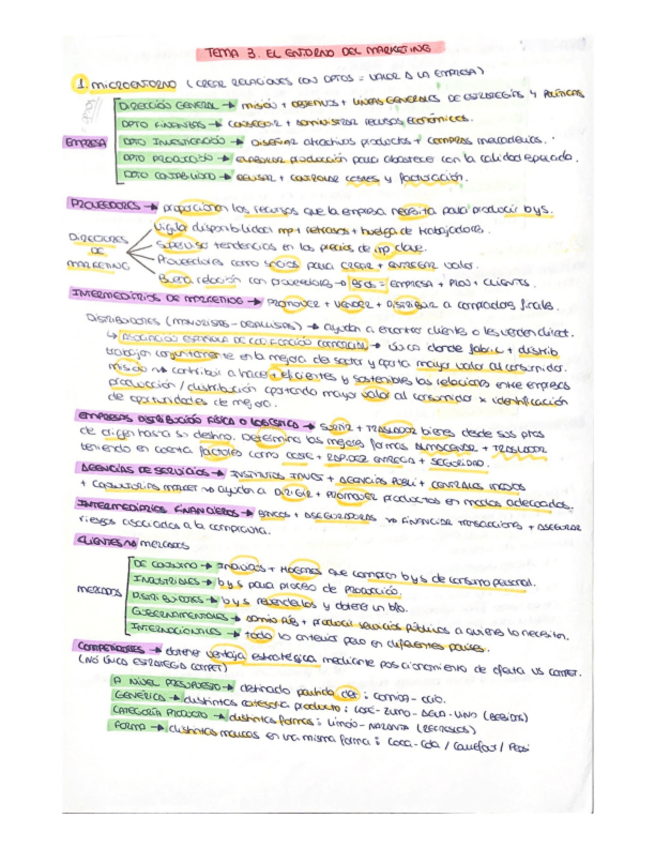 TEMA 3. EL ENTORNO DEL MARKETING
1. MICROENTORNO (CREAR RELACIONES CON DPTOS = VALOR A LA EMPRESA)
EMPRESA
DIRECCIÓN GENERAL → MISIÓN + OBJETIVOS + LÍNEAS GENERALES DE ESTRATEGIAS Y POLÍTICAS
DPTO FINANZAS → CONSEGUIR + ADMINISTRAR RECURSOS ECONÓMICOS.
DPTO INVESTIGACIÓN → DISEÑAR atractivos productos + COMPRAS mercaderías.
DPTO PRODUCCIÓN → ELABORAR producción para abastecer con la calidad esperada.
DPTO CONTABILIDAD → REVISAR + CONTROLAR COSTES y FACTURACIÓN.
PROVEEDORES → proporcionan los recursos que la empresa necesita para producir bys.
DIRECTORES DE MARKETING
Vigilar disponibilidad mp + retrasos + huelga de trabajadores.
Supervisar tendencias en los precios de mp clave.
Proveedores como socios para CREAR + ENTREGAR valor.
Buena relación con proveedores → = EMPRESA + PROV + CLIENTES.
INTERMEDIARIOS DE MARKETING → PROMOVER + VENDER + DISTRIBUIR a compradores finales.
DISTRIBUIDORES (MAYORISTAS - DETALLISTAS) → ayudan a encontrar clientes o les venden direct.
↳ ASOCIACIÓN ESPAÑOLA DE CODIFICACIÓN COMERCIAL → única donde fabric + distrib
trabajan conjuntamente en la mejora del sector y aporta mayor valor al consumidor.
misión → contribuir a hacer + eficientes y sostenibles las relaciones entre empresas
producción / distribución aportando mayor valor al consumidor x identificación
de oportunidades de mejora.
EMPRESAS DISTRIBUCIÓN FÍSICA O LOGÍSTICA → SURTIR + TRASLADAR bienes desde sus ptos
de origen hasta su destino. Determina las mejores formas ALMACENAR + TRASLADAR
teniendo en cuenta factores como COSTE + RAPIDEZ ENTREGA + SEGURIDAD.
AGENCIAS DE SERVICIOS → INSTITUTOS INVEST + AGENCIAS PUBLI + CENTRALES MEDIOS
+ CONSULTORÍAS MARKET → ayudan a DIRIGIR + PROMOVER productos en mdos adecuados.
INTERMEDIARIOS FINANCIEROS → BANCOS + ASEGURADORAS → FINANCIAR TRANSACCIONES + ASEGURAR
riesgos asociados a la compraventa.
CLIENTES → MERCADOS
MERCADOS
DE CONSUMO → INDIVIDUOS + HOGARES que compran bys de consumo personal.
INDUSTRIALES → bys para proceso de PRODUCCIÓN.
DISTRIBUIDORES → bys revenderlos y obtener un bfo.
GUBERNAMENTALES → producir servicios públicos a quienes lo necesiten.
INTERNACIONALES → todo lo anterior pero en diferentes países.
COMPETIDORES → obtener ventaja estratégica mediante posicionamiento de oferta vs COMPET.
(NO ÚNICA ESTRATEGIA COMPET)
A NIVEL PRESUPUESTO → destinado partida de: comida - ocio.
GENÉRICA → distintas categoría producto: CAFÉ - ZUMO - AGUA - VINO (BEBIDAS)
CATEGORÍA PRODUCTO → distintas formas: LIMÓN - NARANJA (REFRESCOS)
FORMA → distintas marcas en una misma forma: COCA-COLA / Carrefour / PEPSI